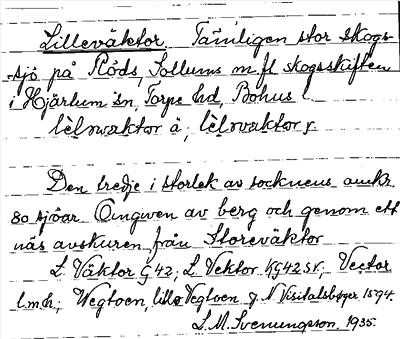 Lilleväktor. Tämligen stor skogs-
sjö på Röds, Sollums m. fl. skogsskiften
i Hjärtum sn, Torpe hd, Bohus l.
lèlsvaktor å; lèlsvaktor f.
Den tredje i storlek av socknens omkr.
80 sjöar. Omgiven av berg och genom ett
näs avskuren från Storeväktor
L. Väktor G 42; L. Vektor KG42SV; Vector
l.m.h.; Wegtoen, lille Vegtoen J. N Visitalsbøger 1594.
L. M. Svenungsson. 1935.